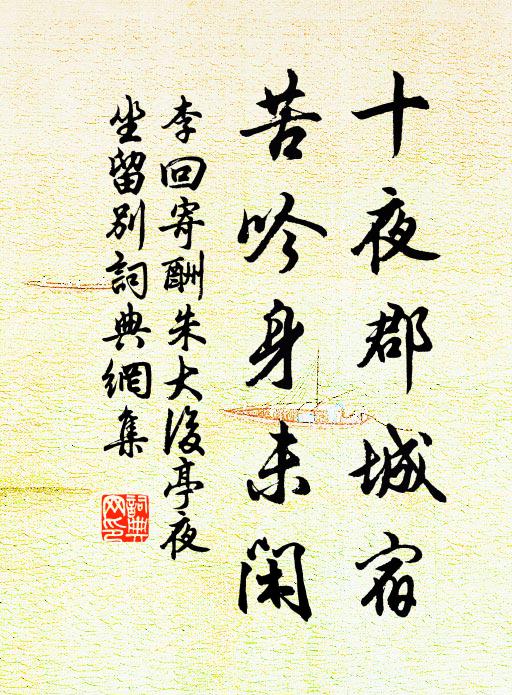 十夜郡城宿
苦吟身未闲
李回寄酬朱大後亭夜
坐留别詞典網集
詞典
网印